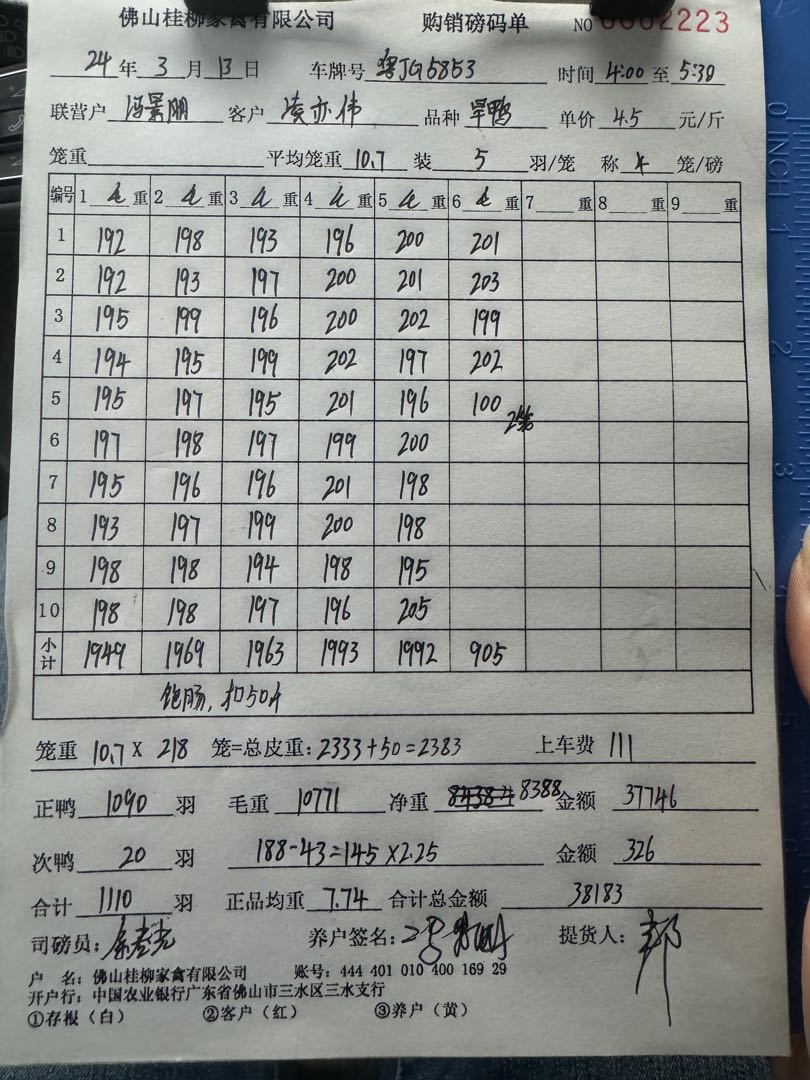 佛山桂柳家禽有限公司 购销磅码单 NO 0002223
24年3月13日 车牌号 粤JG5853 时间 4:00 至 5:30
联营户 冯景明 客户 凌亦伟 品种 旱鸭 单价 4.5 元/斤
笼重 平均笼重 10.7 装 5 羽/笼 称 4 笼/磅
编号 1 毛 重 2 毛 重 3 毛 重 4 毛 重 5 毛 重 6 毛 重 7 重 8 重 9 重
1 192 198 193 196 200 201
2 192 193 197 200 201 203
3 195 199 196 200 202 199
4 194 195 199 202 197 202
5 195 197 195 201 196 100 2笼
6 197 198 197 199 200
7 195 196 196 201 198
8 193 197 199 200 198
9 198 198 194 198 195
10 198 198 197 196 205
小计 1949 1969 1963 1993 1992 905
饱肠,扣50斤
笼重 10.7 X 218 笼=总皮重:2333+50=2383 上车费 111
正鸭 1090 羽 毛重 10771 净重 8388 金额 37746
次鸭 20 羽 188-43=145×2.25 金额 326
合计 1110 羽 正品均重 7.74 合计总金额 38183
司磅员: 养户签名: 提货人:
户 名:佛山桂柳家禽有限公司 账号:444 401 010 400 169 29
开户行:中国农业银行广东省佛山市三水区三水支行
①存根(白) ②客户(红) ③养户(黄)
0 INCH 1
2
3